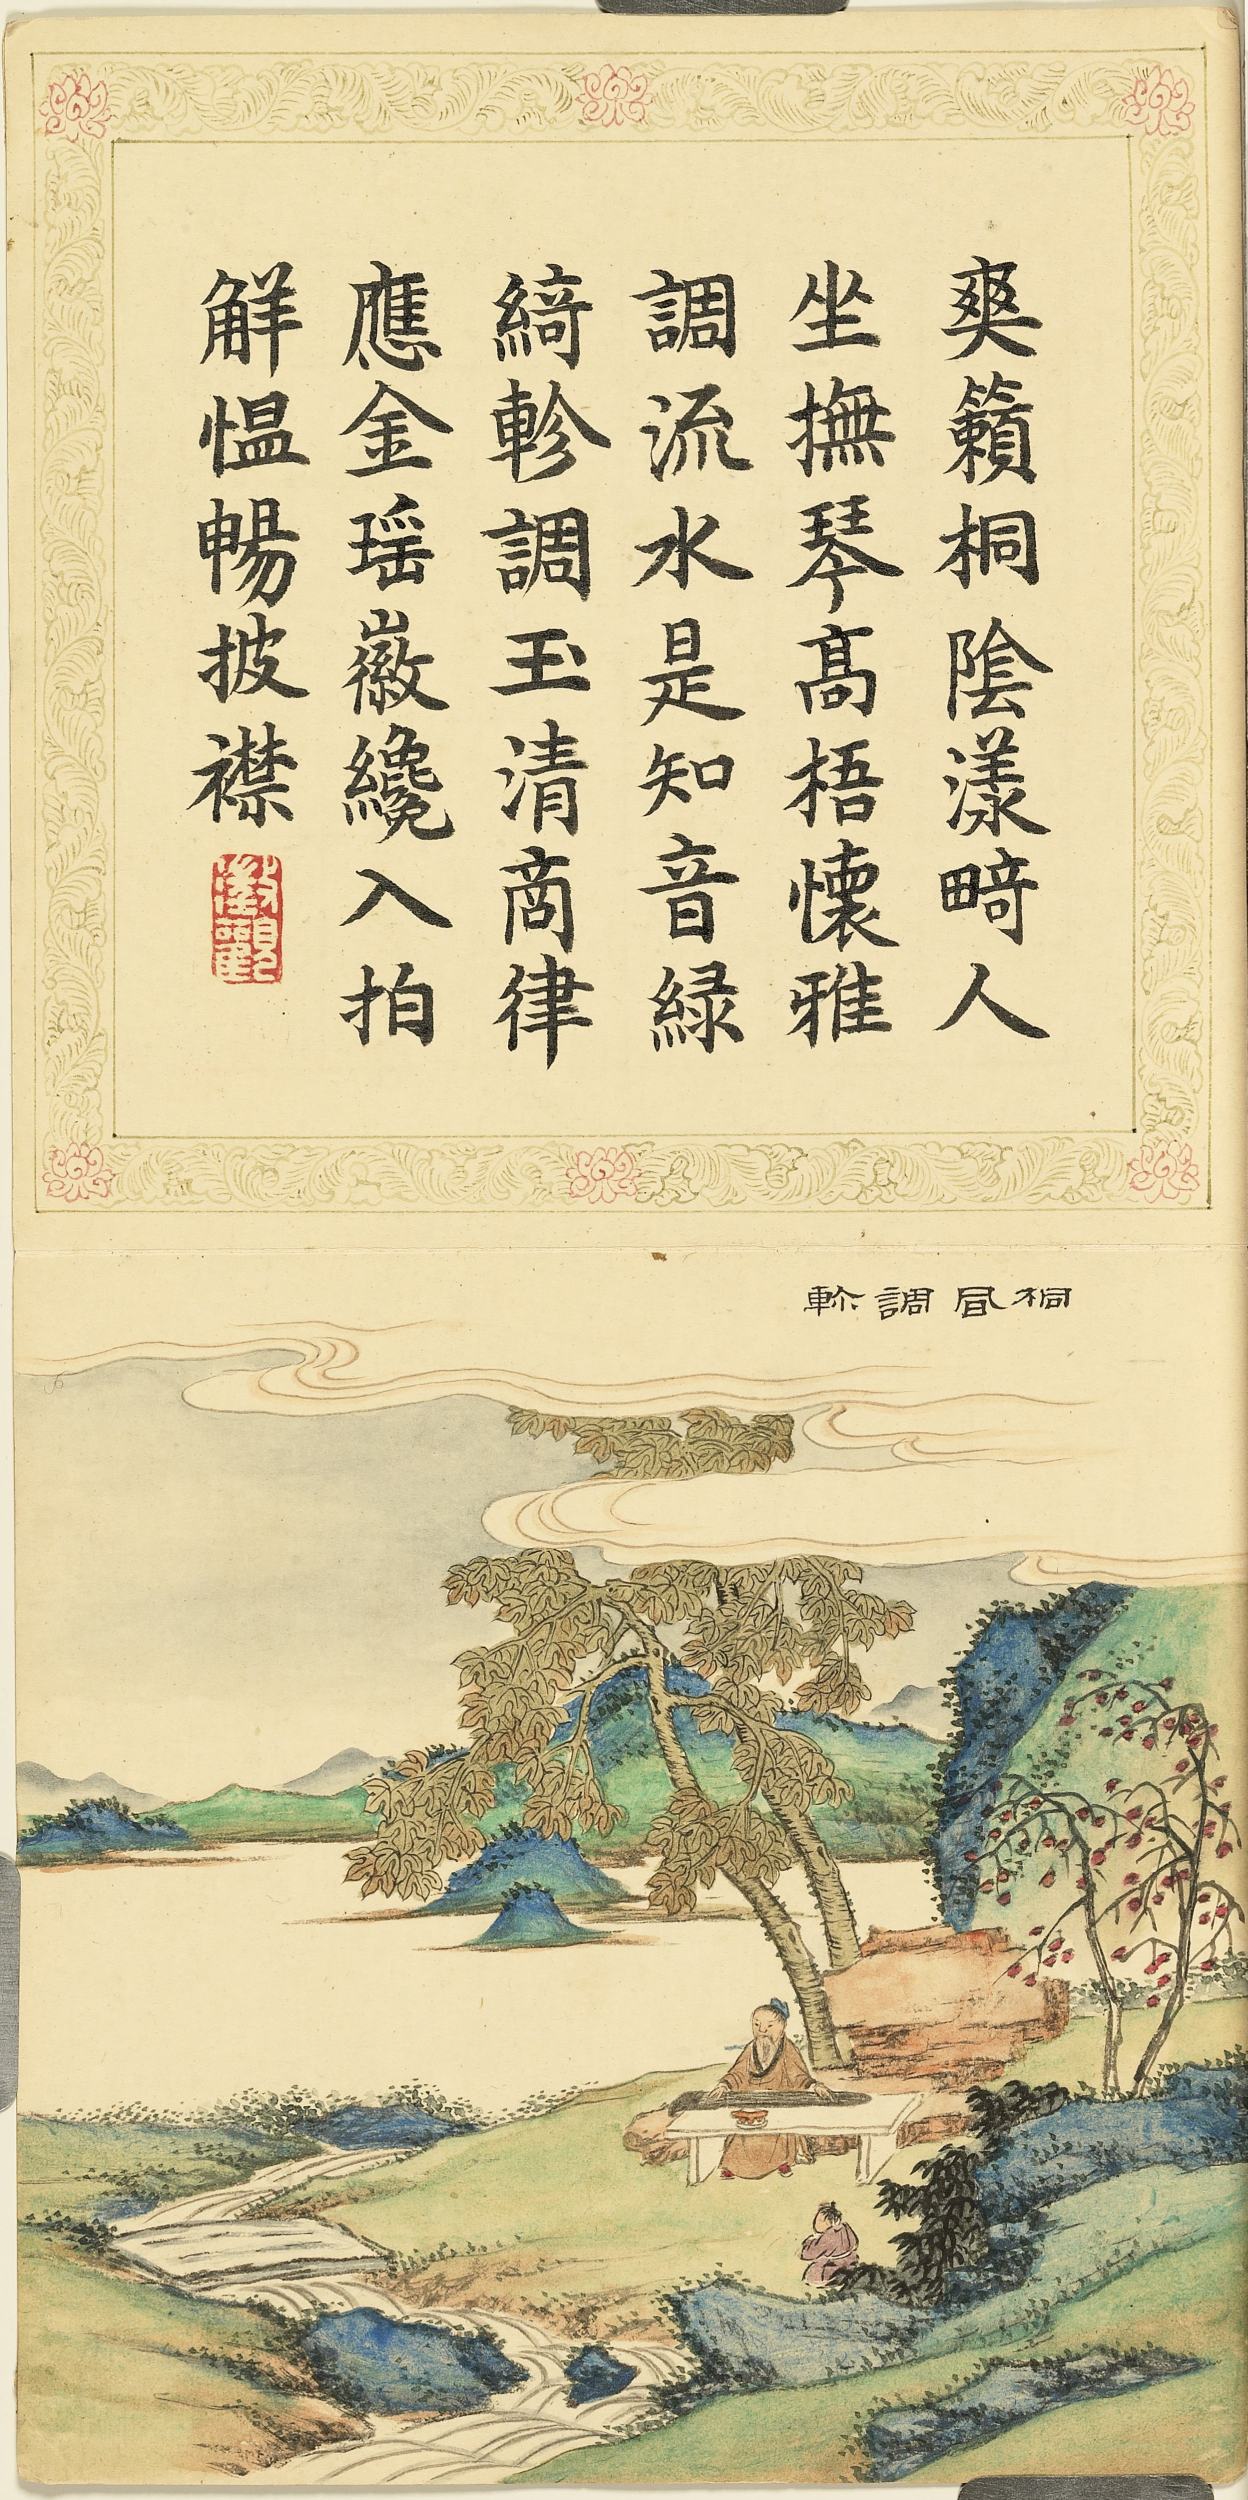 爽籟桐陰漾畸人
坐撫琴髙梧懷雅
調流水是知音緑
綺軫調玉清商律
應金瑶徽纔入拍
觧愠暢披襟
桐凬調軫